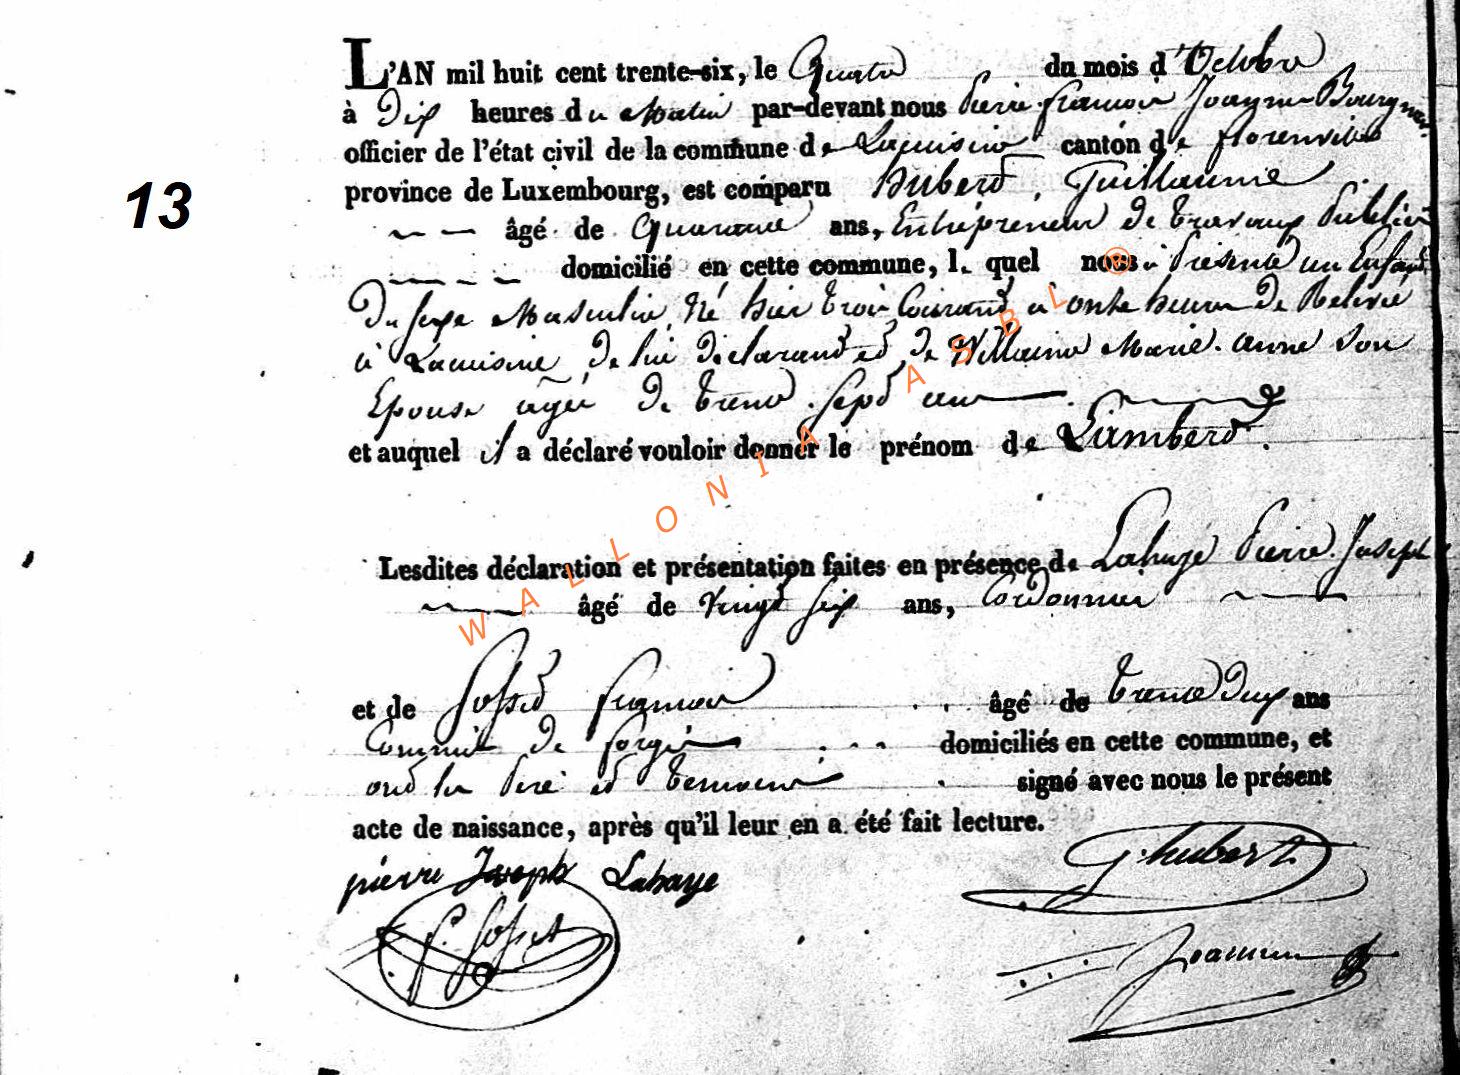 L'AN mil huit cent trente-six, le Quatre du mois d'Octobre
à Dix heures du Matin par-devant nous Pierre françois Joannes Bourgmestre
officier de l'état civil de la commune de Lacuisine canton de florenville
province de Luxembourg, est comparu Hubert, Guillaume
âgé de Quarante ans, Entrepreneur de travaux Publics
domicilié en cette commune, lequel nous a Présenté un Enfant
Du sexe Masculin, Né hier trois Courant à onze heures de Relevée
à Lacuisine, De lui déclarant et de Willaime Marie-anne Son
Epouse agée de trente-sept ans
et auquel il a déclaré vouloir donner le prénom de Lambert.
Lesdites déclaration et présentation faites en présence de Lahaye Pierre Joseph
âgé de Vingt six ans, Cordonnier
et de Josset françois âgé de trente Deux ans
Commis de forges domiciliés en cette commune, et
ont les Père et temoins signé avec nous le présent
acte de naissance, après qu'il leur en a été fait lecture.
pierre Joseph Lahaye
G. hubert
f. Josset
Joannes
13
WALLONIA ASBL ®